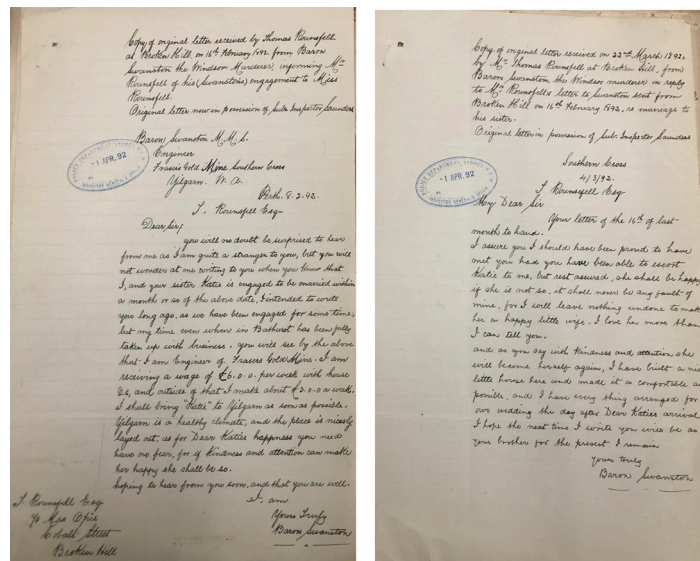 Copy of original letter received by Thomas Rounsfell
at Broken Hill, on 16th February 1892, from Baron
Swanston the Windsor Murderer, informing Mr
Rounsfell of his (Swanston's) engagement to Miss
Rounsfell.
Original letter now in possession of Sub Inspector Saunders
Baron Swanston M.M.S.
Engineer
Frasers Gold Mine Southern Cross
Yilgarn. W. A.
Perth. 8.2.92.
T. Rounsfell Esq
Dear Sir,
you will no doubt be surprised to hear
from me as I am quite a stranger to you, but you will
not wonder at me writing to you when you know that
I, and your sister Katie is engaged to be married within
a month or so of the above date, I intended to write
you long ago, as we have been engaged for some time,
but my time even when in Bathurst has been fully
taken up with business. you will see by the above
that I am Engineer of Frasers Gold Mine. I am
receiving a wage of £6.0.0. per week with house
&c, and outside of that I make about £2.0.0 a week.
I shall bring "Katie" to Yilgarn as soon as possible.
Yilgarn is a healthy climate, and the place is nicely
layed out, as for Dear Katies happiness you need
have no fear, for if kindness and attention can make
her happy she shall be so.
hoping to hear from you soon, and that you are well.
I am
Yours Truly
Baron Swanston
T. Rounsfell Esq
c/o Mrs Opie
Cobalt Street
Broken Hill
POLICE DEPARTMENT, SYDNEY, N.S.W.
-1 APR. 92
INSPECTOR GENERAL'S OFFICE
Copy of original letter received on 22nd March 1892,
by Mr Thomas Rounsfell at Broken Hill, from
Baron Swanston, the Windsor murderer in reply
to Mr Rounsfells letter to Swanston sent from
Broken Hill on 16th February 1892, re marriage to
his sister.
Original letter in possession of Sub. Inspector Saunders
Southern Cross
4/3/92.
T. Rounsfell Esq
My Dear Sir
Your letter of the 16th of last
month to hand.
I assure you I should have been proud to have
met you had you have been able to escort
Katie to me, but rest assured, she shall be happy
if she is not so, it shall never be any fault of
mine, for I will leave nothing undone to make
her a happy little wife, I love her more than
I can tell you.
and as you say with kindness and attention she
will become herself again, I have built a nice
little house here and made it as comfortable as
possible, and I have every thing arranged for
our wedding the day after Dear Katies arrival
I hope the next time I write you will be as
your brother for the present I remain
yours truly
Baron Swanston
POLICE DEPARTMENT, SYDNEY, N.S.W.
-1 APR. 92
INSPECTOR GENERAL'S OFFICE